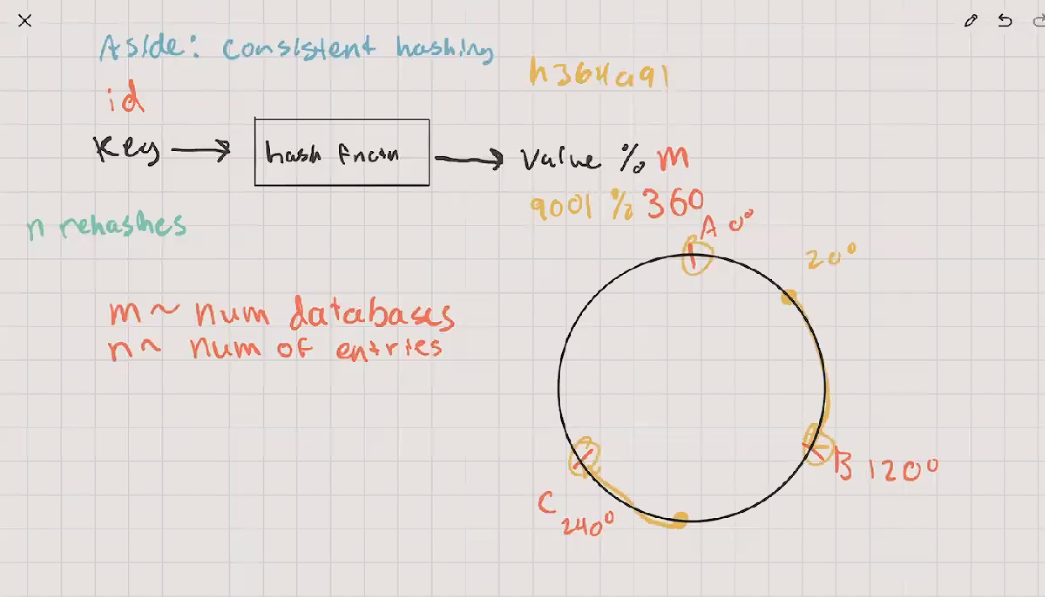 Aside: consistent hashing
h364a91
id
Key → hash fnctn → value % m
9001 % 360
n rehashes
A 0°
20°
m ~ num databases
n ~ num of entries
B 120°
C 240°